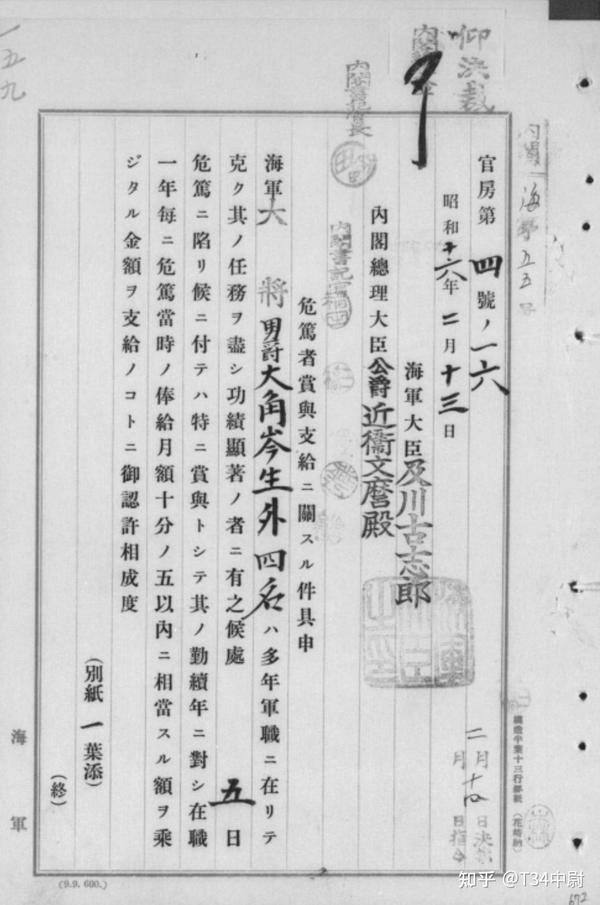 仰決裁
一五九
内閣書記官長
内閣 海 第五五号
官房第四號ノ一六
昭和十六年二月十三日
海軍大臣及川古志郎
内閣總理大臣公爵近衞文麿殿
内閣書記官
危篤者賞與支給ニ關スル件具申
海軍大將男爵大角岑生外四名ハ多年軍職ニ在リテ
克ク其ノ任務ヲ盡シ功績顯著ノ者ニ有之候處五日
危篤ニ陷リ候ニ付テハ特ニ賞與トシテ其ノ勤續年ニ對シ在職
一年每ニ危篤當時ノ俸給月額十分ノ五以內ニ相當スル額ヲ乘
ジタル金額ヲ支給ノコトニ御認許相成度
(別紙一葉添)
(終)
二月十四日決裁
月 日指令
海軍
(9.9.600.)
672
知乎 @T34中尉